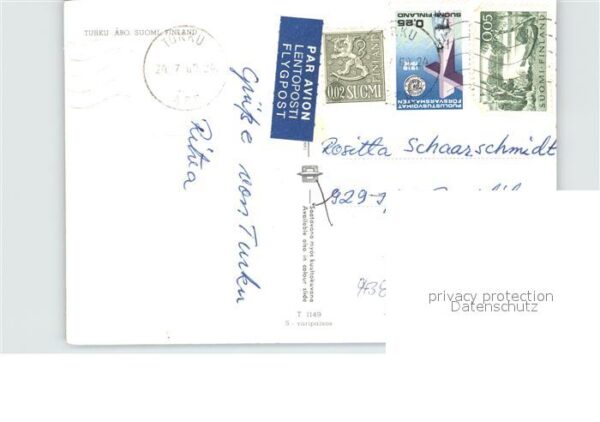 TURKU ÅBO, SUOMI, FINLAND
TURKU
Grüße von Turku
Ritva
PAR AVION
LENTOPOSTI
FLYGPOST
FINLAND
0.02 SUOMI
0,25
SUOMI FINLAND
1918
PUOLUSTUSVOIMAT
FÖRSVARSMAKTEN
0,05
SUOMI-FINLAND
Rositta Schaarschmidt
929-
Saatavana myös kuultokuvana
Available also in colour slide
T 1149
S-väripalvelu
privacy protection
Datenschutz